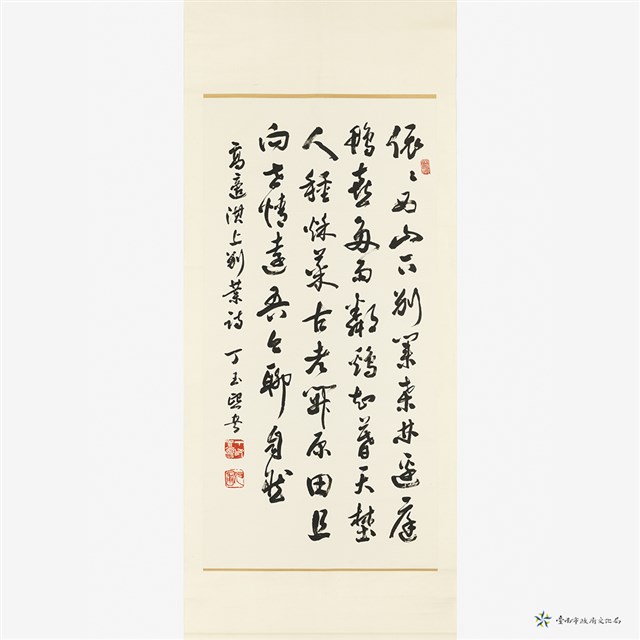 依依西山下別業桑林邊庭
鴨喜多雨鄰鷄知暮天埜
人種秋菜古老開原田且
向世情遠吾今聊自然
高適淇上別業詩 丁玉熙書
臺南市政府文化局